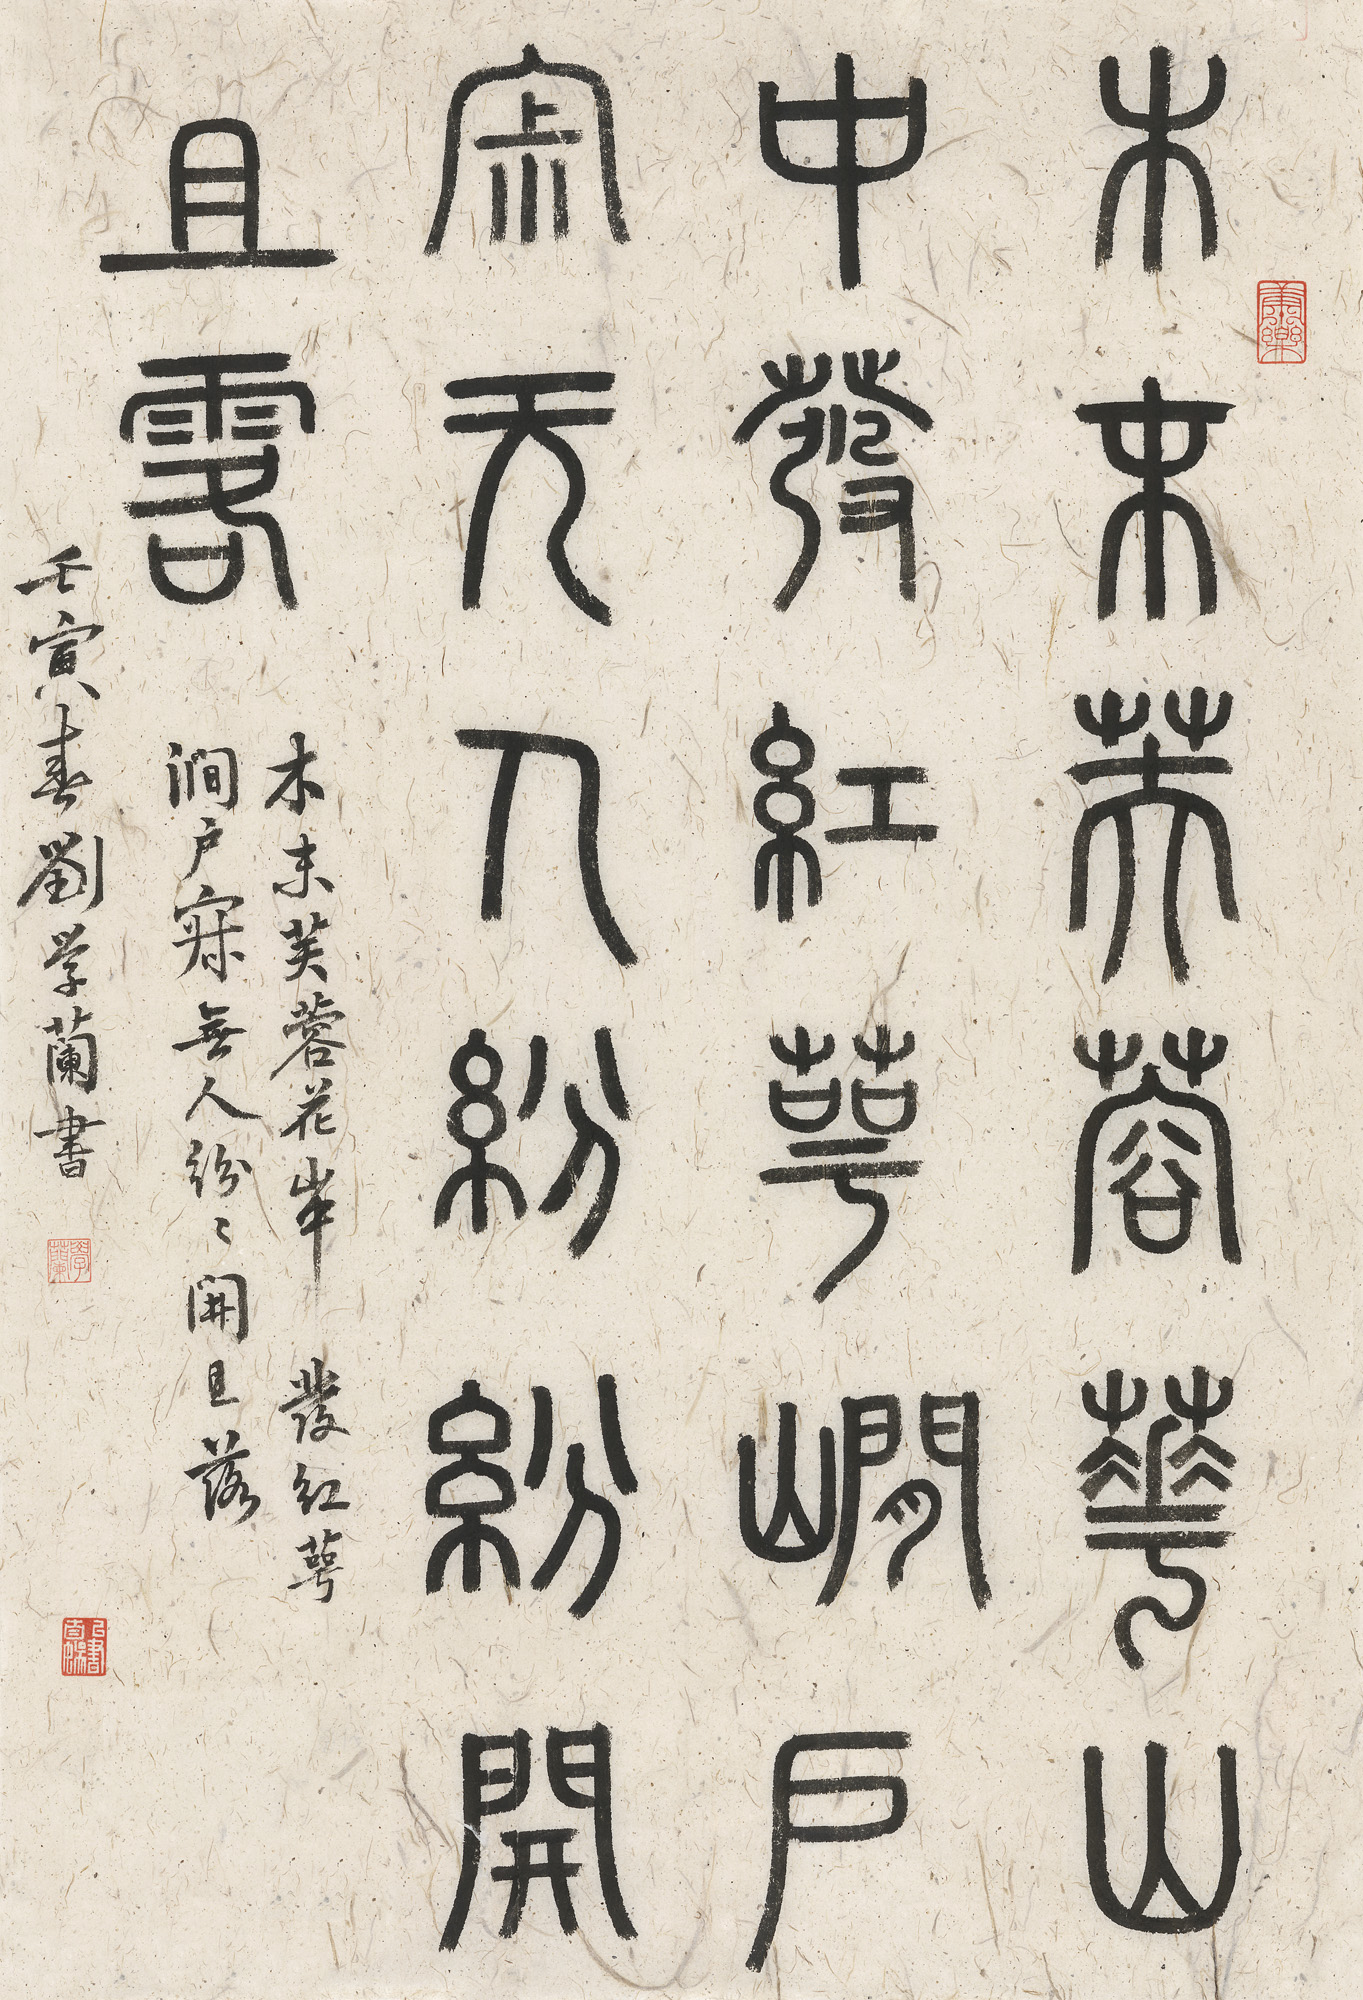 木末芙蓉華山
中發紅萼澗戶
寂无人紛紛開
且落
木末芙蓉花山中發紅萼
澗户寂無人紛〻開且落
壬寅春劉学蘭書
學蘭